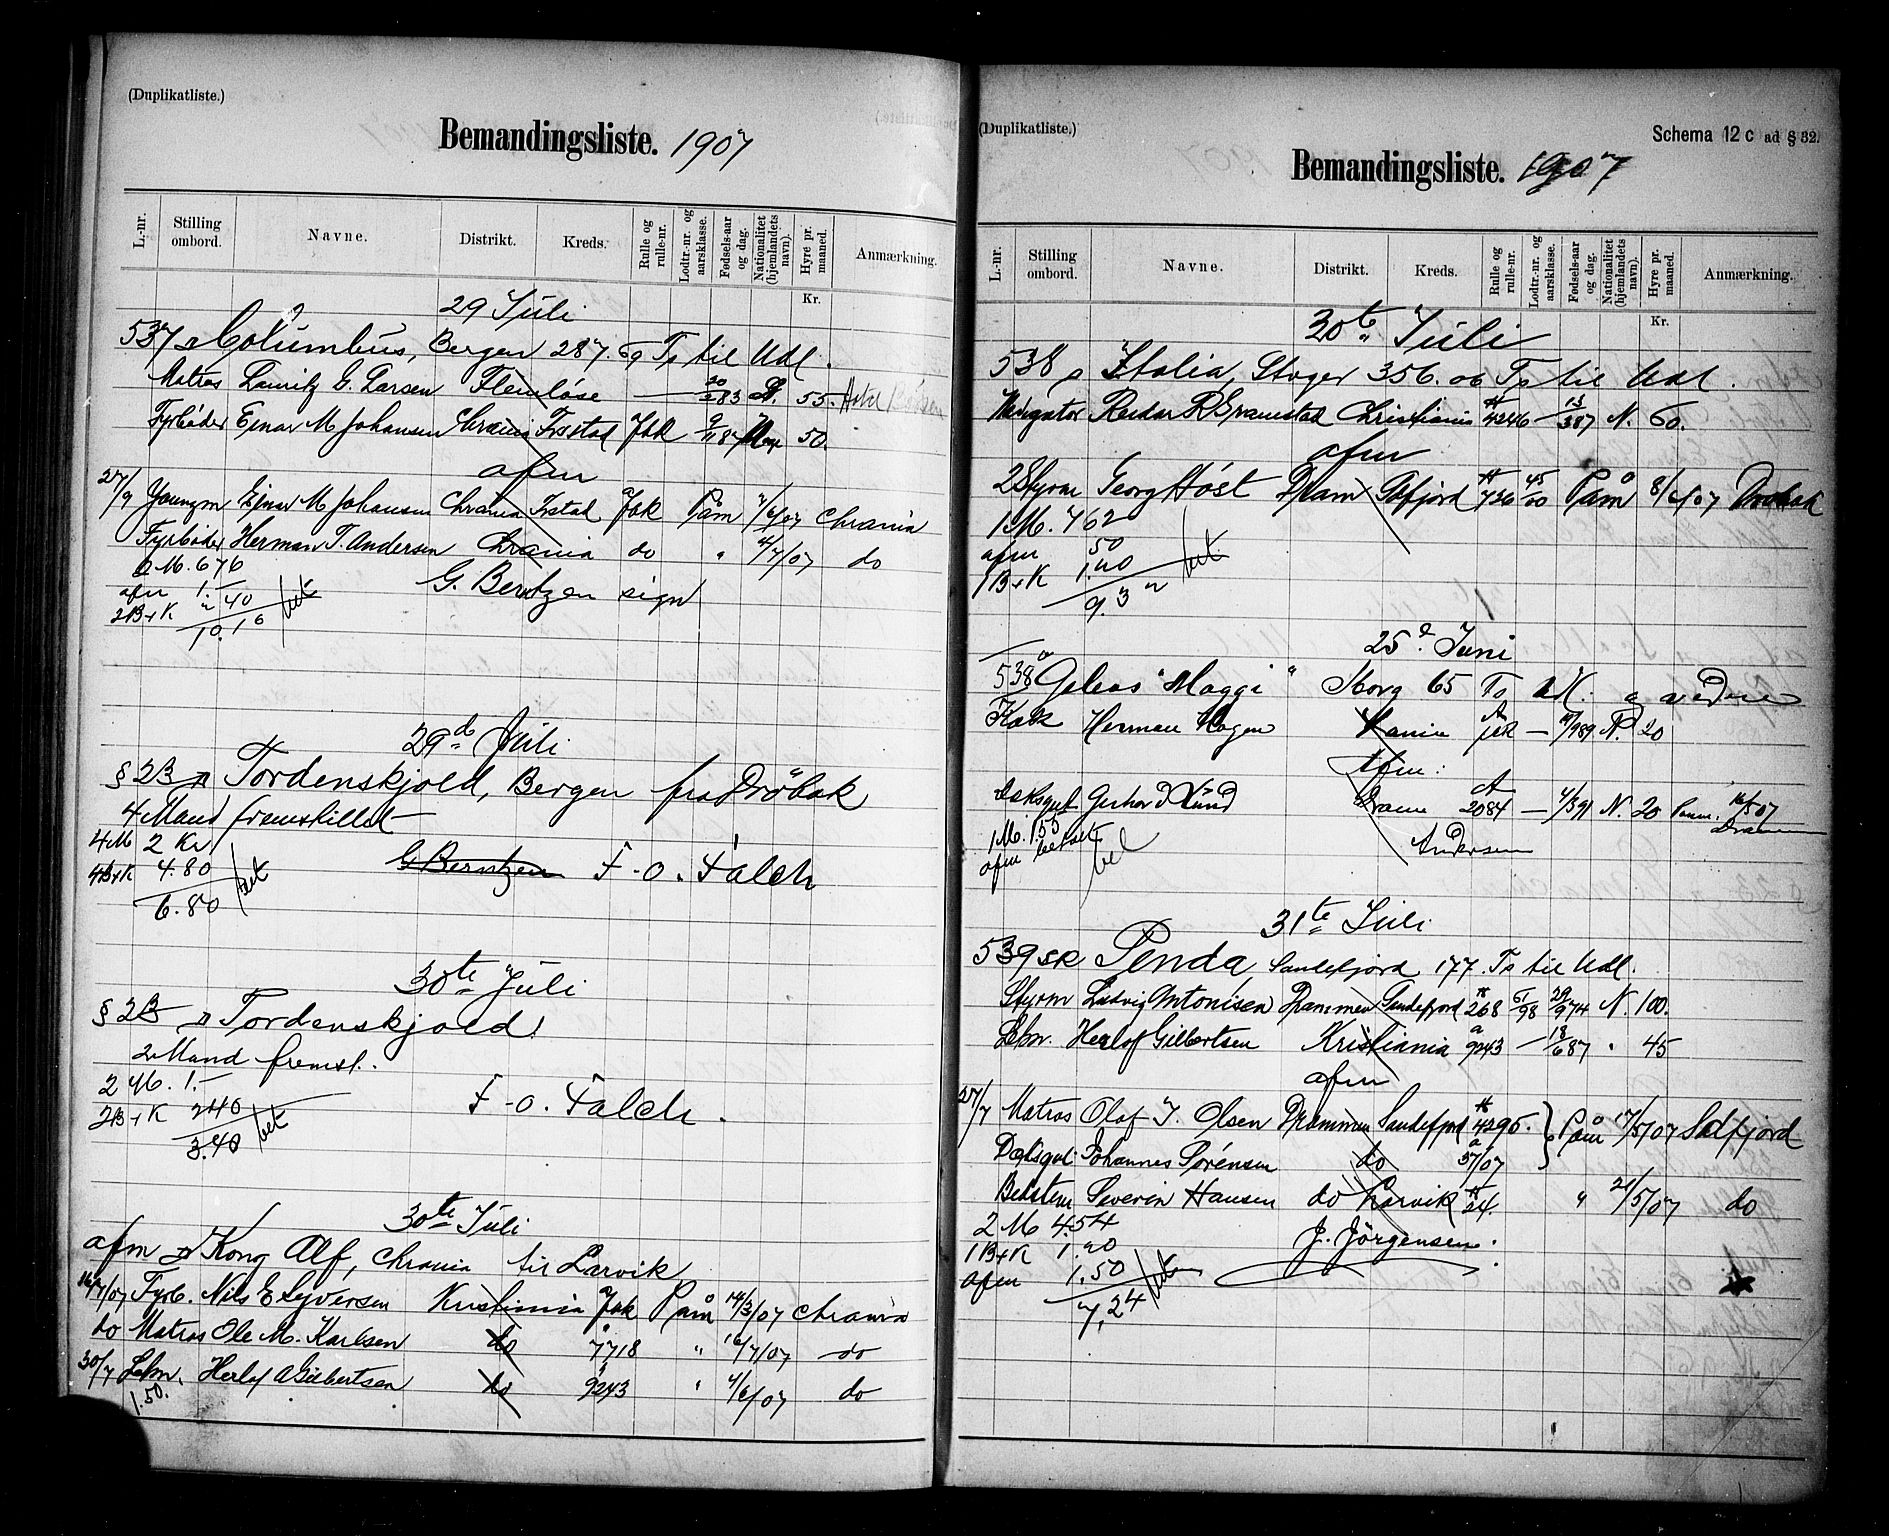 (Duplikatliste.)
Bemandingsliste. 1907
L.-nr. Stilling ombord. Navne. Distrikt. Kreds. Rulle og rulle-nr. Lodtr.-nr. og aarsklasse. Fødsels-aar og dag. Nationalitet (hjemlandets navn). Hyre pr. maaned. Anmærkning.
Kr.
29 Juli
537 Columbus, Bergen 287. 69 Ts til Udl.
Matros Lauritz C. Larsen Flemløse 83 55.
Fyrbøder Ejnar M Johansen Chrania Frstad Jak 50.
afm
27/7 Youngm Ejnar M Johansen Chrania Frstad Jak Påm 7/6/07 Chrania
Fyrbøder Herman T. Andersen Chrania do " 4/7/07 do
2 M. 676
afm 1.- G. Berntzen sign
2B+K 2 40
10.16 bet
29de Juli
§ 2B Tordenskjold, Bergen fra Drøbak
4 Mand fremstillet
4 M 2 Kr
4B+K 4.80 G Berntzen F. O. Falch
6.80 bet
30te Juli
§ 2B Tordenskjold
2 Mand fremst.
2 M. 1.-
2B+K 240 F. O. Falch.
3.40 bet
30te Juli
afm Kong Alf, Chrania til Larvik
Fyrb. Nils E Syversen Kristiania Jak Påm 14/3/07 Chrania
do Matros Ole M. Karlsen do 7718 " 16/7/07 do
30/7 Lebm. Herlof A Gilbertsen do 9243 " 4/6/07 do
1.50.
(Duplikatliste.)
Schema 12 c ad § 32.
Bemandingsliste. 1907
L.-nr. Stilling ombord. Navne. Distrikt. Kreds. Rulle og rulle-nr. Lodtr.-nr. og aarsklasse. Fødsels-aar og dag. Nationalitet (hjemlandets navn). Hyre pr. maaned. Anmærkning.
Kr.
30te Juli
538 Italia, Stvger 356. 06 Ts til Udl.
Navigatør Reidar R Gramstad Christiania 4246 — 13/387 N. 60.
afm
2 Styrm Georg Høst Dram 736 45/00 Påm 8/6/07 Drøbak
1 M. 762
afm 50
1B+K 1.20 bet
9.32
25de Juni
538a Galeas "Maggi" Skorg 65 Ts
Kok Herman Hagen Jak — N. 20
Afm:
Dæksgut Gerhard Lund Dram 2084 — 4/391 N. 20 Paam.
1 M. 155 Dram
afm betalt Andersen
bet
31te Juli
539 SK Penda, Sandefjord 177. Ts til Udl.
Styrm Ludvig Antonisen Drammen Sandefjord 268 61/98 29/974 N. 100.
Lebm. Herlof Gilbertsen Kristiania 9243 — 18/687 " 45
afm
27/7 Matros Olaf J. Olsen Drammen Sandefjord 4295. Påm 17/5/07 Sdfjord
Dæksgut Johannes Sørensen do 57/07
Bedstem Severin Hansen do Larvik 24. " 21/5/07 do
2 M 4.54
1B+K 1.20 J. Jörgensen.
afm 1.50
7,24 bet